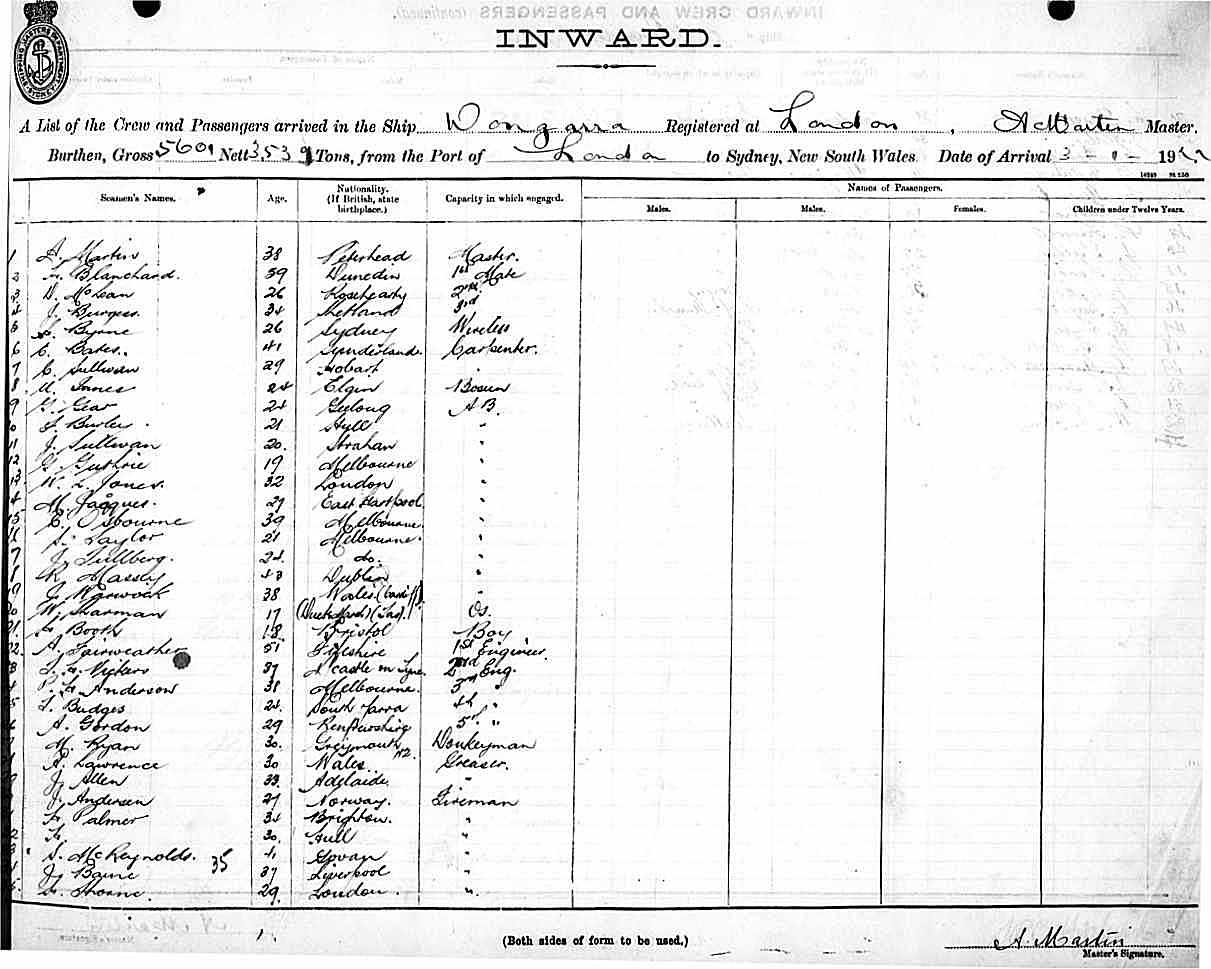 INWARD.
A List of the Crew and Passengers arrived in the Ship Wongarra Registered at London, A Martin Master.
Burthen, Gross 5601 Nett 3539 Tons, from the Port of London to Sydney, New South Wales. Date of Arrival 3 - 1 - 19
Seamen's Names. Age. Nationality. (If British, state birthplace.) Capacity in which engaged. Names of Passengers.
Males. Males. Females. Children under Twelve Years.
1 A. Martin 38 Peterhead Master.
2 Blanchard. 59 Dunedin 1st Mate
3 D. McLean 26 Rosehearty 2nd
4 J. Burgess. 34 Shetland 3rd
5 Byrne 26 Sydney Wireless
6 C. Bates. 41 Sunderland. Carpenter.
7 C. Sullivan 29 Hobart
8 Innes 24 Elgin Bosun
9 G. Gear 24 Geelong A.B.
Burley 21 Hull "
11 J. Sullivan 20. Strahan "
12 G. Guthrie 19 Melbourne "
13 W. L. Jones. 32 London "
M. Jacques. 27 East Hartpool "
15 C. Osbourne 39 Melbourne. "
Taylor 21 Melbourne. "
J. Tullberg. 24. do. "
R. Massey 43 Dublin "
J. Warwock 38 Wales. (Cardiff) "
W. Sharman 17 (Duck March) (Tas) Os.
Booth 18. Bristol Boy
22 A. Fairweather 51 Fifeshire 1st Engineer.
Vickers 37 N castle on Tyne. 2nd Eng.
Anderson 31 Melbourne. 3rd "
Budges 24. South Yarra 4th "
A. Gordon 29 Renfrewshire 5th "
M. Ryan 30. Greymouth NZ. Donkeyman
A. Lawrence 30 Wales Greaser.
J. Allen 33. Adelaide "
J. Andersen 27 Norway. Fireman
Palmer 34 Brighton. "
30. Hull "
S. McReynolds. 35 41 Govan "
J. Baine 37 Liverpool "
Thorne. 29. London. "
(Both sides of form to be used.)
A. Martin
Master's Signature.